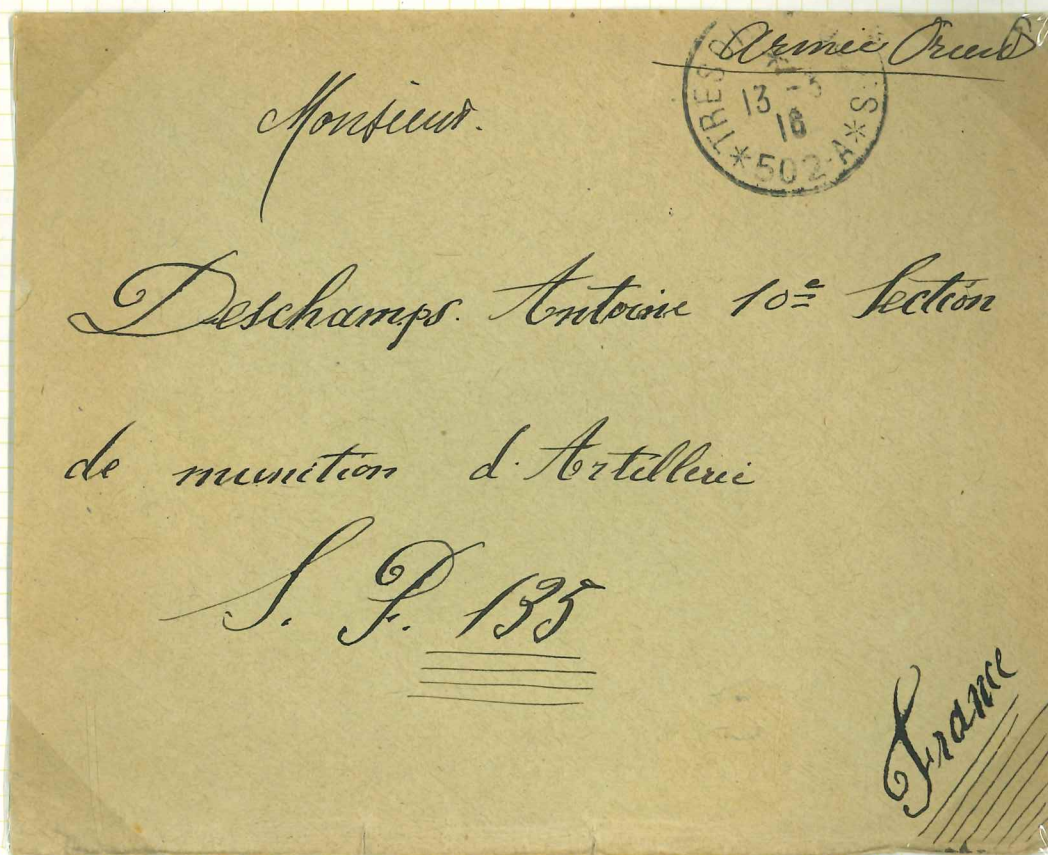 Armée Orient
*TRES
13 - 3
16
*502-A*S.
Monsieur.
Deschamps. Antoine 10e Section
de munition d'Artillerie
S. P. 135
France